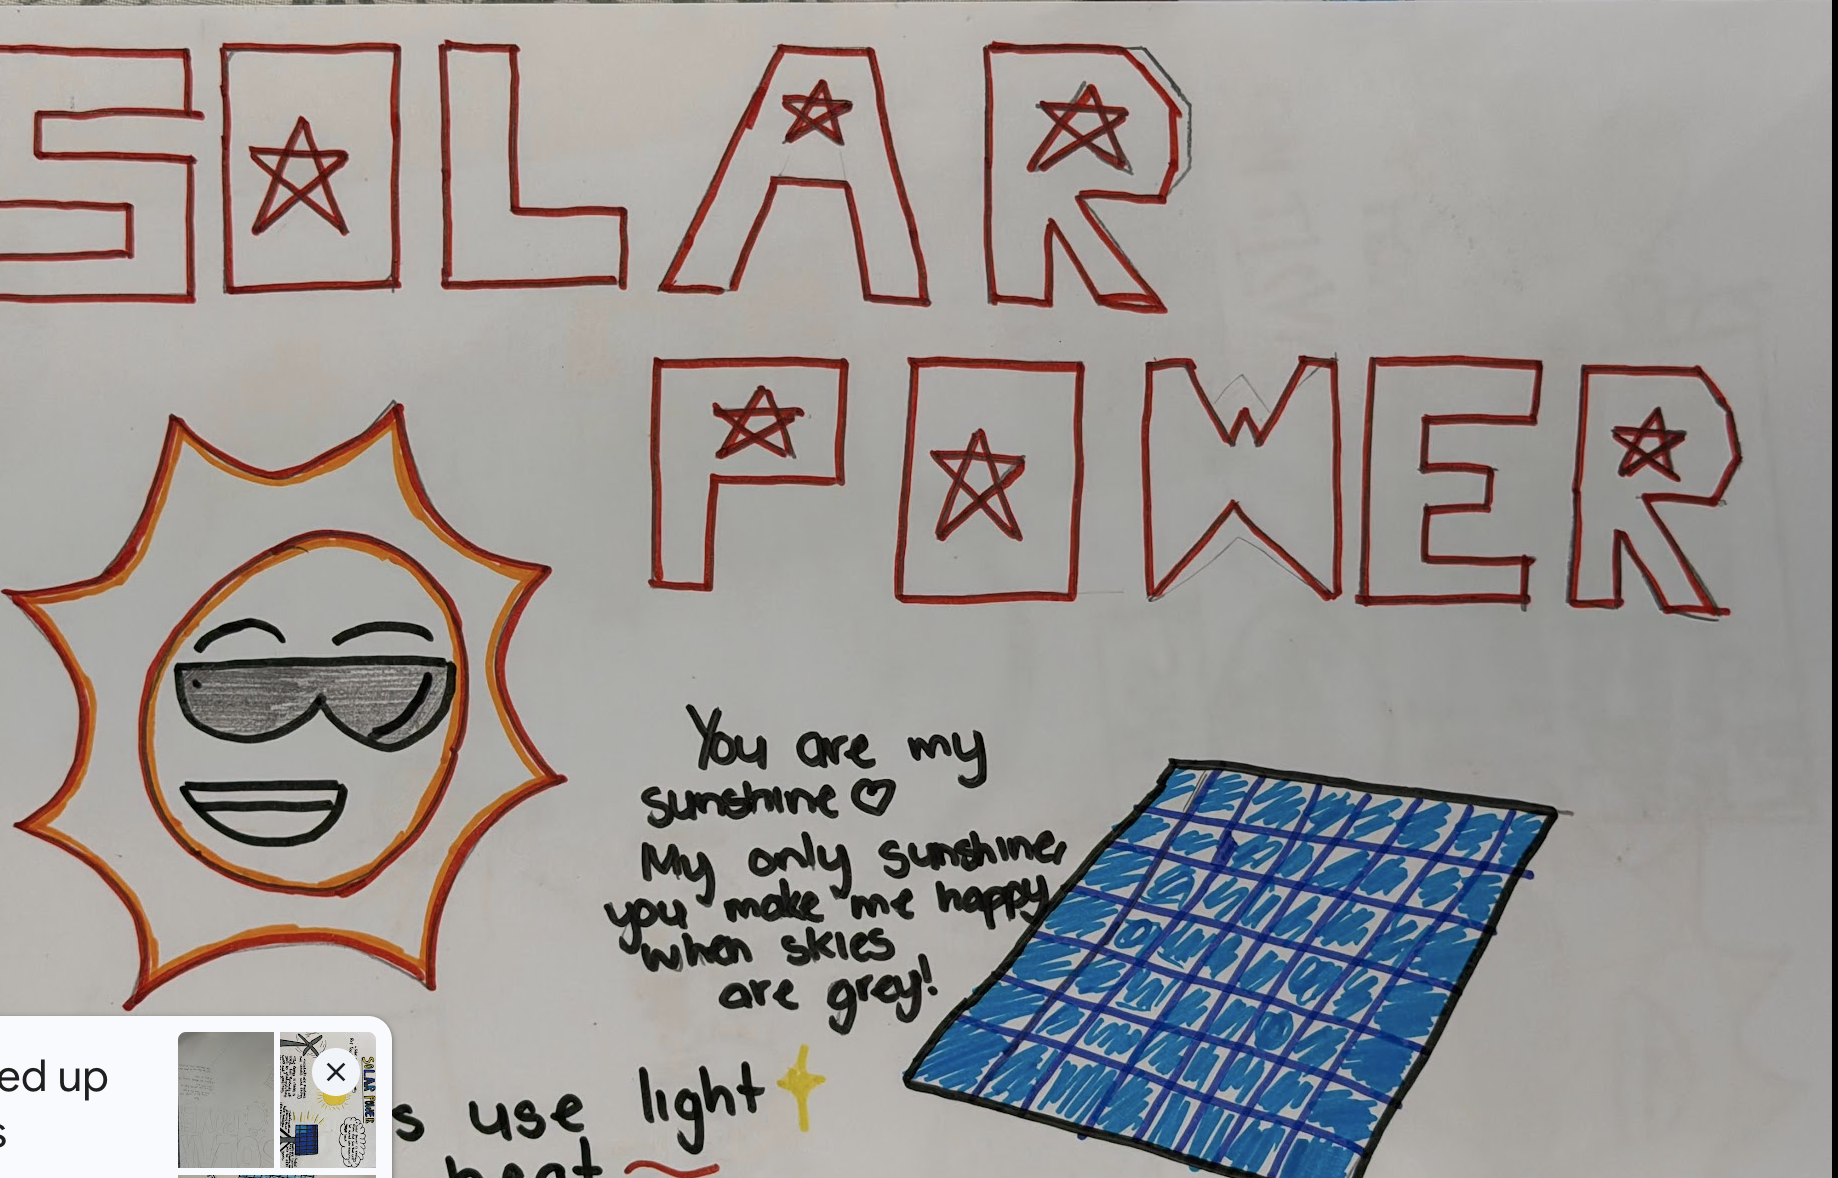 SOLAR
POWER
You are my
sunshine ♡
My only sunshine,
you make me happy
when skies
are grey!
s use light
heat
ed up
s
SOLAR POWER